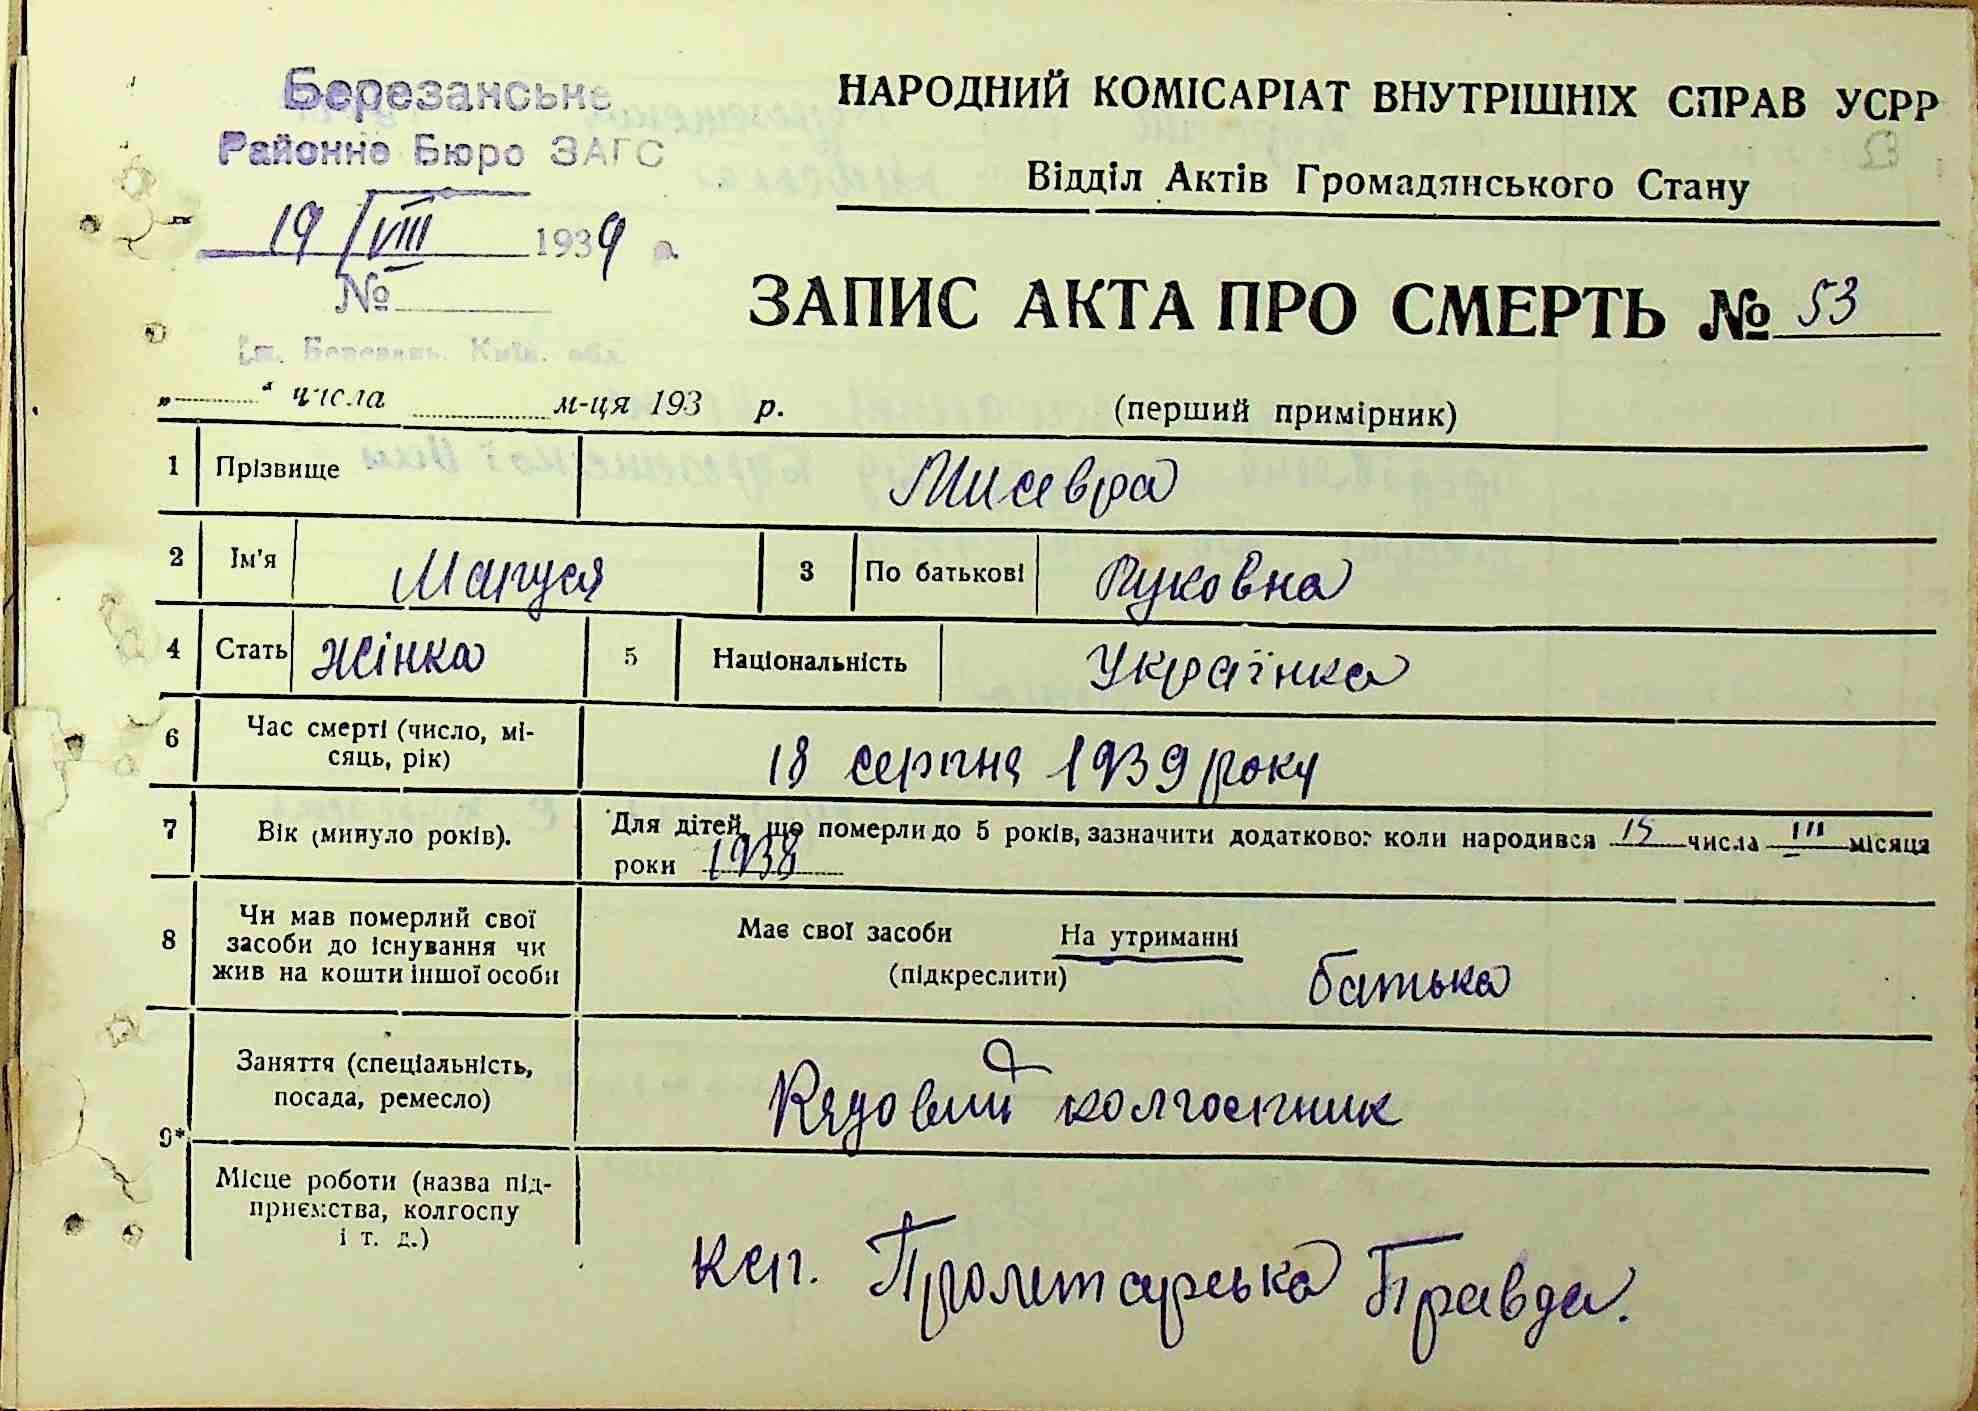 Березанське
Районне Бюро ЗАГС
19/VIII 1939 р.
№
ст. Березань, Київ. обл.
НАРОДНИЙ КОМІСАРІАТ ВНУТРІШНІХ СПРАВ УСРР
Відділ Актів Громадянського Стану
ЗАПИС АКТА ПРО СМЕРТЬ № 53
„ “ числа м-ця 193 р. (перший примірник)
1 Прізвище Мисевра
2 Ім'я Маруся 3 По батькові Луковна
4 Стать Жінка 5 Національність Українка
6 Час смерті (число, мі-
сяць, рік) 18 серпня 1939 року
7 Вік (минуло років). Для дітей, що померли до 5 років, зазначити додатково: коли народився 15 числа III місяця
роки 1938
8 Чи мав померлий свої
засоби до існування чи
жив на кошти іншої особи
Має свої засоби На утриманні
(підкреслити) батька
9* Заняття (спеціальність,
посада, ремесло) Рядовий колгоспник
Місце роботи (назва під-
приємства, колгоспу
і т. д.)
ксп. Пролетарська Правда.